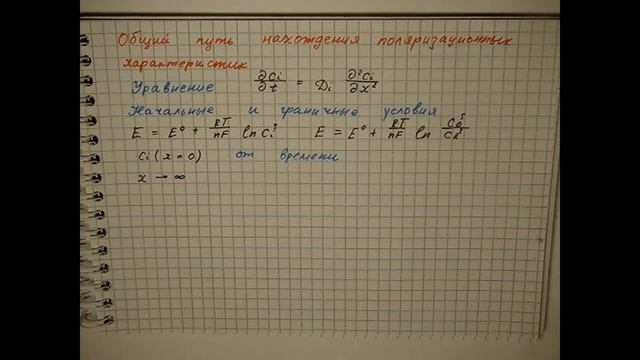 Общий путь нахождения поляризационных
характеристик
Уравнение ∂Ci/∂t = Di ∂²Ci/∂x²
Начальные и граничные условия
E = E⁰ + RT/nF ln Ciˢ E = E⁰ + RT/nF ln Coˢ/CRˢ
Ci (x=0) от времени
x → ∞